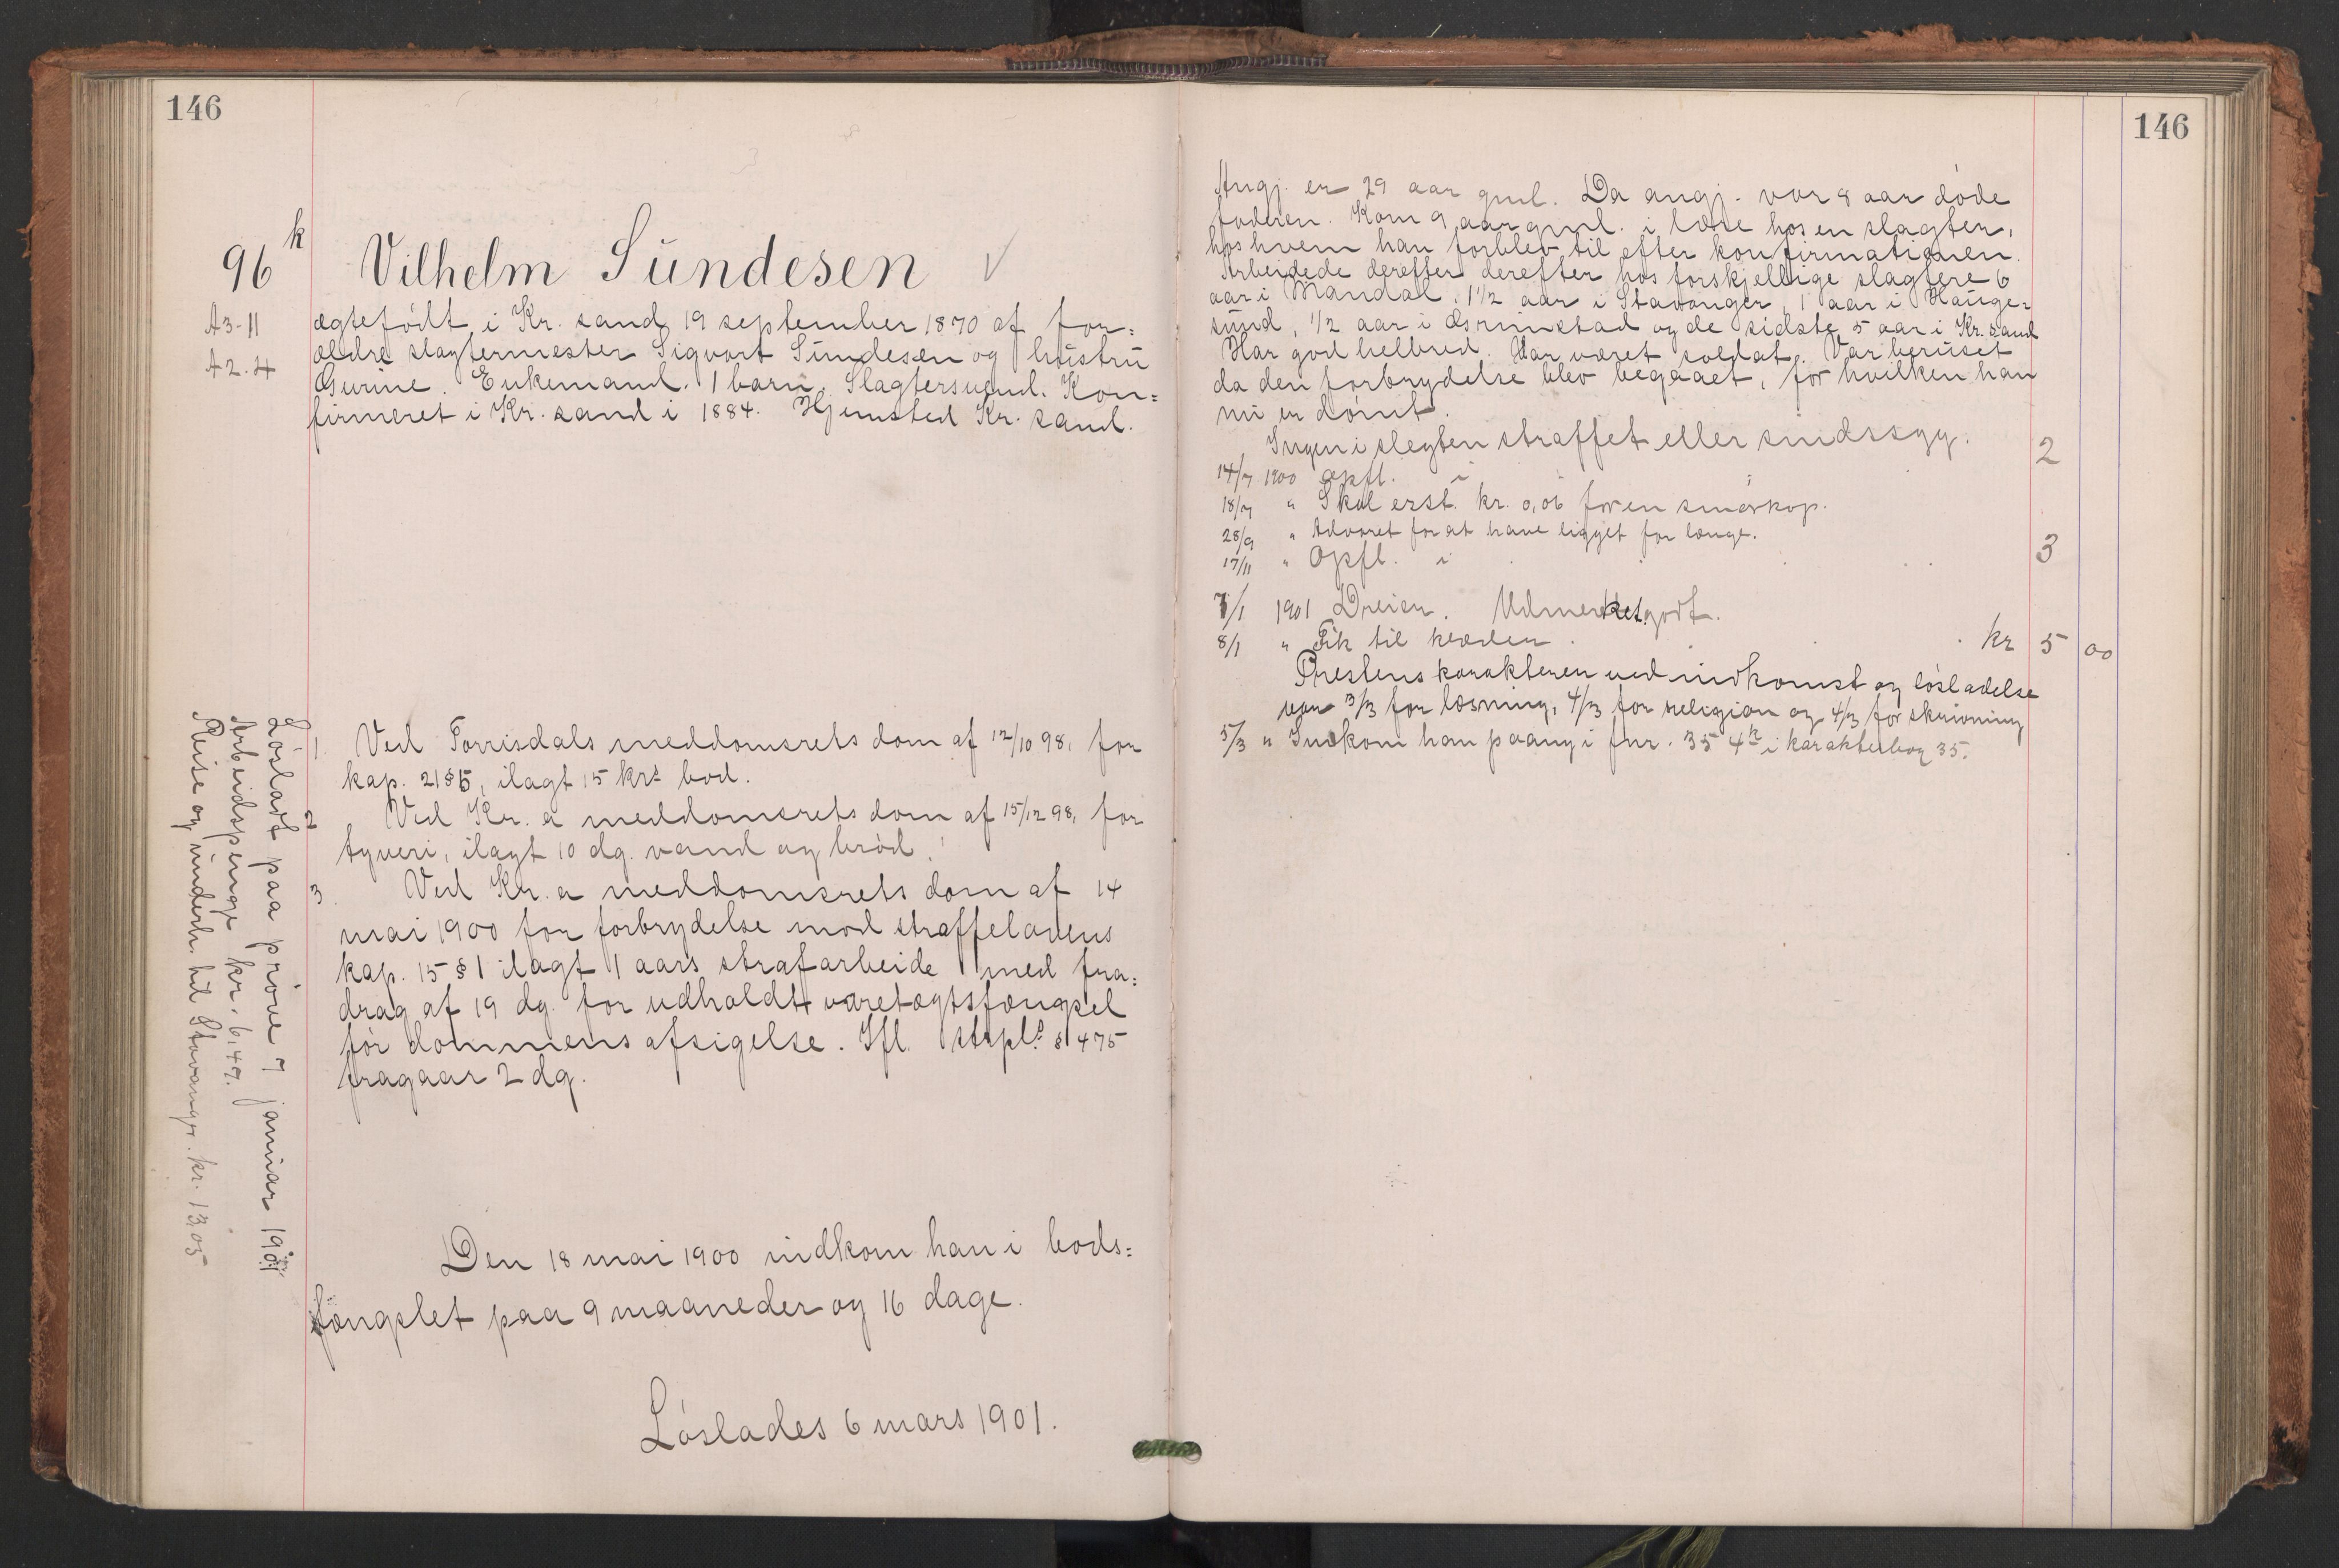 146
96 k
Vilhelm Sundesen √
A3-11
A2.4
ægtefødt i Kr. sand 19 september 1870 af for=
ældre slagtermester Sigvart Sundesen og hustru
Gurine. Enkemand. 1 barn. Slagtersvend. Kon=
firmeret i Kr. sand i 1884. Hjemsted Kr. sand.
1 Ved Torrisdals meddomsrets dom af 12/10 98, for
kap. 21 § 5, ilagt 15 krs bod.
2 Ved Kr. a meddomsrets dom af 15/12 98, for
tyveri, ilagt 10 dg. vand og brød.
3 Ved Kr. a meddomsrets dom af 14
mai 1900 for forbrydelse mod straffelovens
kap. 15 § 1 ilagt 1 aars strafarbeide med fra=
drag af 19 dg. for udholdt varetægtsfængsel
før dommens afsigelse. Ifl. strpl. § 475
fragaar 2 dg.
Løsladt paa prøve 7 januar 1901
Arbeidspenge kr. 6,47.
Reise og underh. til Stavanger. kr. 13,05
Den 18 mai 1900 indkom han i bods=
fængslet paa 9 maaneder og 16 dage.
Løslades 6 mars 1901.
146
Angj. er 29 aar gml. Da angj. var 8 aar døde
faderen. Kom 9 aar gml. i lære hos en slagter,
hos hvem han forblev til efter konfirmationen.
Arbeidede derefter derefter hos forskjellige slagtere 6
aar i Mandal, 1 1/2 aar i Stavanger, 1 aar i Hauge=
sund, 1/2 aar i Grimstad og de sidste 5 aar i Kr. sand
Har god helbred. Har været soldat. Var beruset
da den forbrydelse blev begaaet, for hvilken han
nu er dømt.
Ingen i slegten straffet eller sindssyg.
14/7 1900 Opfl. i 2
18/7 " Skal erst. kr. 0,06 for en smørkop.
28/9 " Advaret for at have ligget for længe.
17/11 " Opfl. i 3
7/1 1901 Dreier. Udmerket godt.
8/1 " Fik til klæder kr 5 00
Prestens karakterer ved indkomst og løsladelse
var 3/3 for læsning, 4/3 for religion og 4/3 for skrivning
5/3 " Indkom han paany i fnr. 35 4k i karakterbog 35.